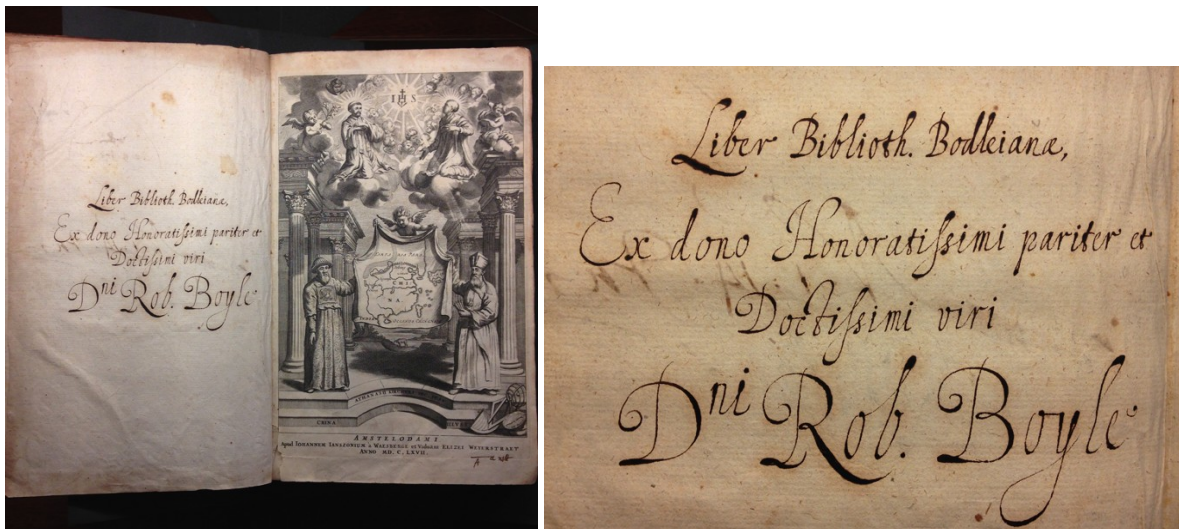 Liber Biblioth. Bodleianæ,
Ex dono Honoratiſsimi pariter et
Doctiſsimi viri
Dni Rob. Boyle
IHS
CHINA
AMSTELODAMI
Apud IOHANNEM IANSSONIUM à WAESBERGE et Viduam ELIZEI WEYERSTRAET
ANNO MD. C. LXVII.
Liber Biblioth. Bodleianæ,
Ex dono Honoratiſsimi pariter et
Doctiſsimi viri
Dni Rob. Boyle